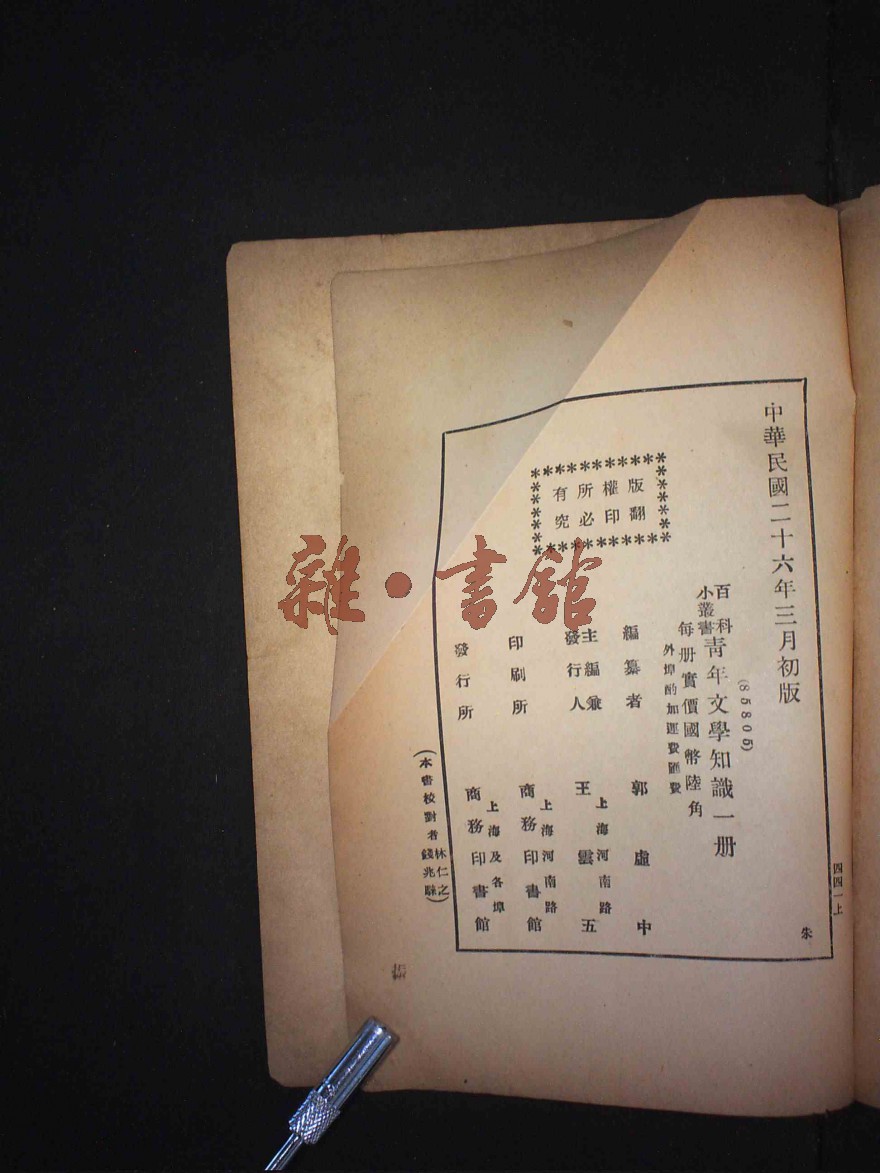 中華民國二十六年三月初版
四四一上
朱
(85805)
百科小叢書 青年文學知識一册
每册實價國幣陸角
外埠酌加運費匯費
版權所有
翻印必究
編纂者 郭虛中
主編兼發行人 王雲五
上海河南路
印刷所 商務印書館
上海河南路
發行所 商務印書館
上海及各埠
(本書校對者 林仁之 錢兆)
雜·書館